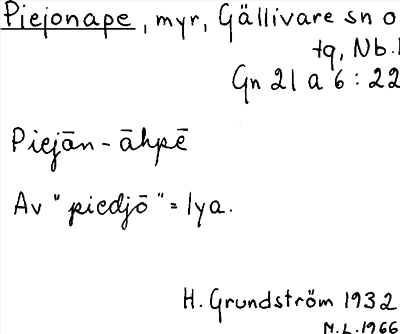 Piejonape, myr, Gällivare sn o
tg, Nb.l
Gn 21 a 6 : 22
Piejān - āhpē
Av "piedjō" = lya.
H. Grundström 1932
N.L. 1966